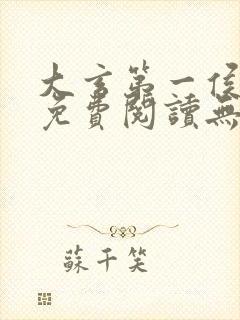 大言第一侯
免費閱讀無
蘇千笑